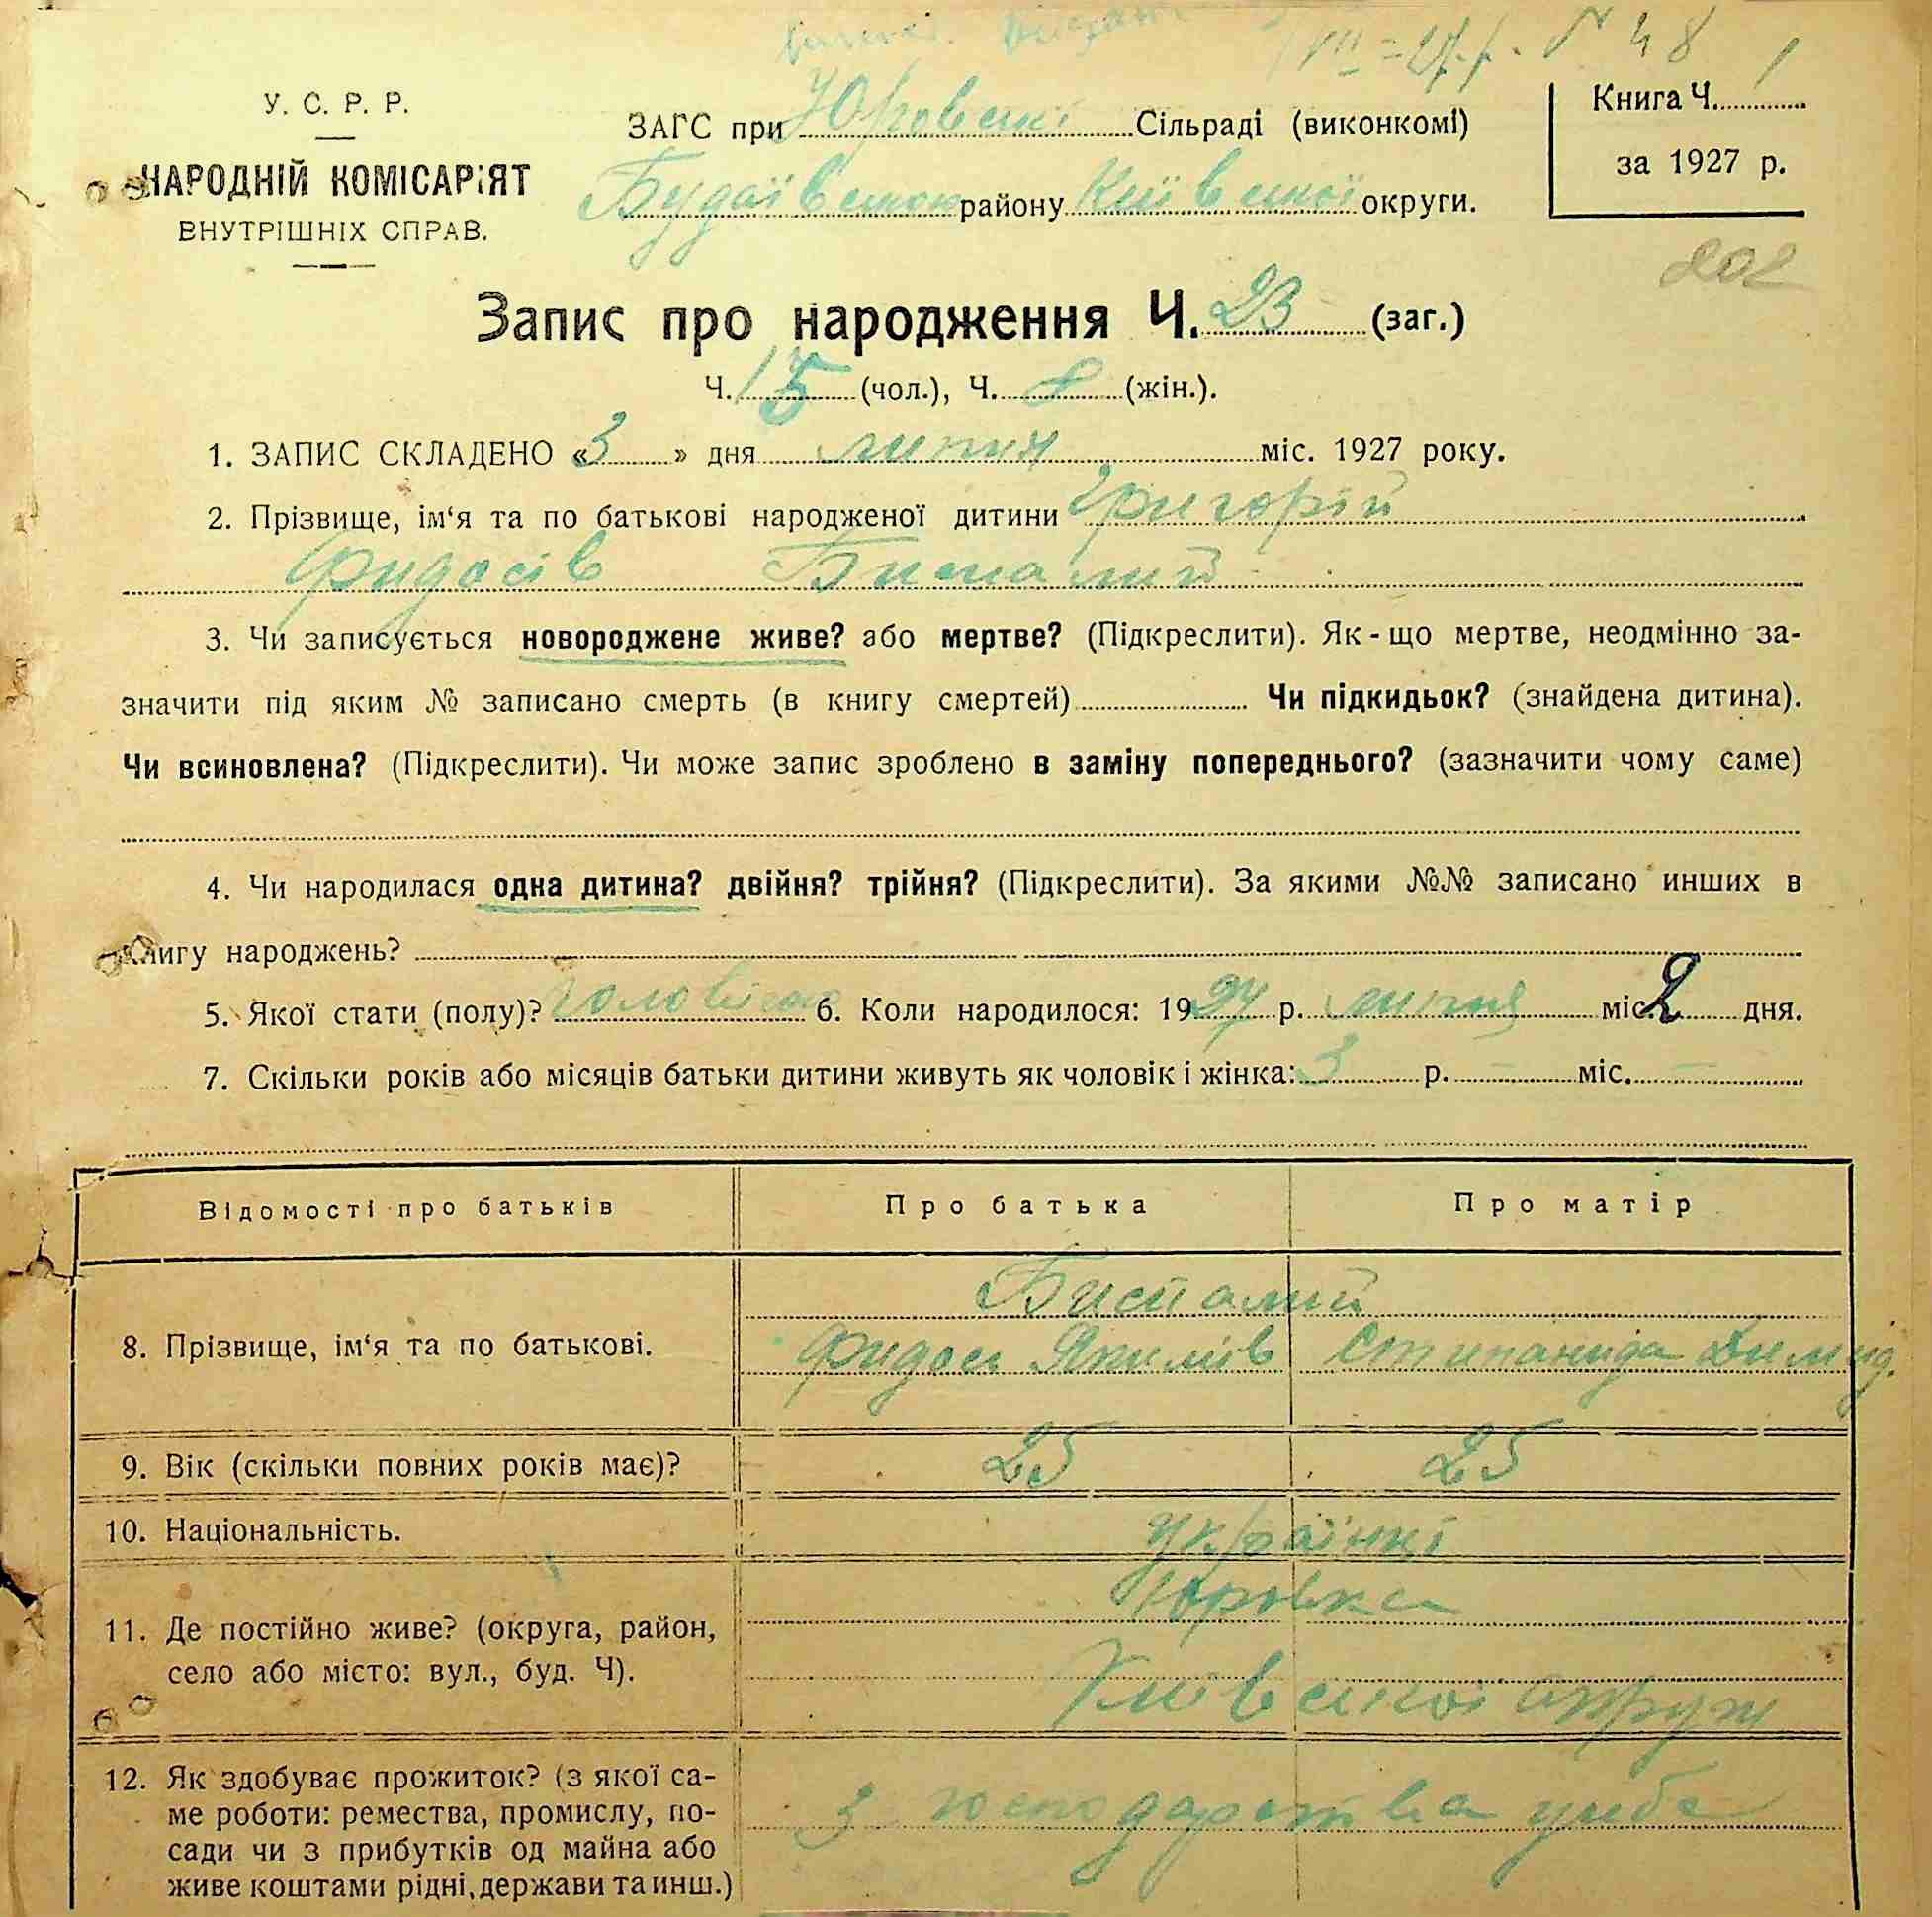 VII = 27 р. N 48
У. С. Р. Р.
НАРОДНІЙ КОМІСАРІЯТ
ВНУТРІШНІХ СПРАВ.
ЗАГС при Юровскі Сільраді (виконкомі)
Будаївськом району Київської округи.
Книга Ч.
за 1927 р.
202
Запис про народження Ч. 23 (заг.)
Ч. 15 (чол.), Ч. 8 (жін.).
1. ЗАПИС СКЛАДЕНО «3» дня липня міс. 1927 року.
2. Прізвище, ім‘я та по батькові народженої дитини Григорій
Фидосів Бисталий
3. Чи записується новороджене живе? або мертве? (Підкреслити). Як-що мертве, неодмінно за-
значити під яким № записано смерть (в книгу смертей) Чи підкидьок? (знайдена дитина).
Чи всиновлена? (Підкреслити). Чи може запис зроблено в заміну попереднього? (зазначити чому саме)
4. Чи народилася одна дитина? двійня? трійня? (Підкреслити). За якими №№ записано инших в
книгу народжень?
5. Якої стати (полу)? 6. Коли народилося: 1927 р. липня міс. 2 дня.
7. Скільки років або місяців батьки дитини живуть як чоловік і жінка: 3 р. – міс. –
Відомості про батьків Про батька Про матір
Бисталий
8. Прізвище, ім‘я та по батькові. Фидось Якимів Стипанида Димид.
9. Вік (скільки повних років має)? 25 25
10. Національність. українці
Юровка
11. Де постійно живе? (округа, район,
село або місто: вул., буд. Ч).
Київської округи
12. Як здобуває прожиток? (з якої са-
ме роботи: ремества, промислу, по-
сади чи з прибутків од майна або
живе коштами рідні, держави та инш.)
З господарства